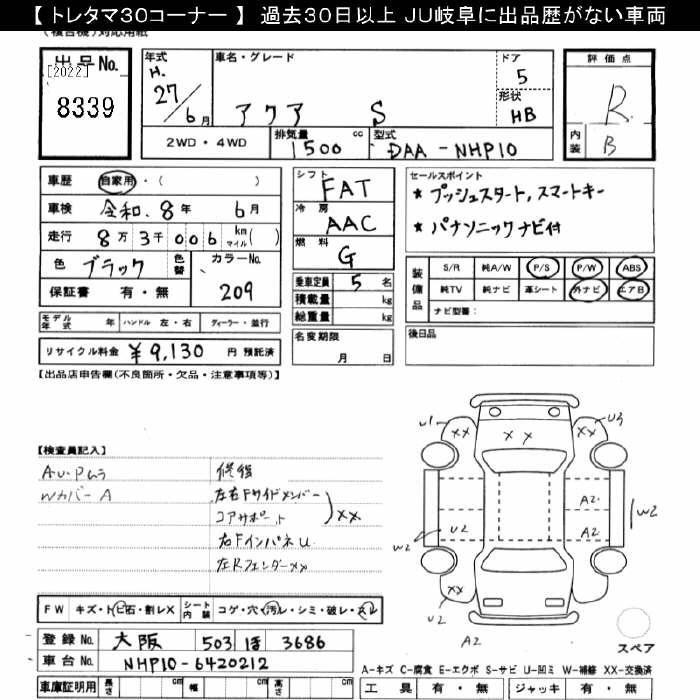 【 トレタマ30コーナー 】 過去30日以上 JU岐阜に出品歴がない車両
(複合機)対応用紙
出品No. [2022] 8339
年式 H. 27/6月
車名・グレード アクア S
ドア 5
形状 HB
評価点 R
内装 B
2WD・4WD
排気量 1500 cc
型式 DAA-NHP10
車歴 自家用・( )
車検 令和. 8年 6月
走行 8万3千006 km マイル ( )
色 ブラック 色替
カラーNo. 209
保証書 有・無
シフト FAT
冷房 AAC
燃料 G
乗車定員 5 名
積載量 kg
総重量 kg
セールスポイント
★ プッシュスタート,スマートキー
★ パナソニックナビ付
装備品
S/R 純A/W P/S P/W ABS
純TV 純ナビ 革シート 外ナビ エアB
ナビ型番:
モデル年式 年 ハンドル 左・右 ディーラー・並行
名変期限 月 日
後日品
リサイクル料金 ¥9,130 円 預託済
【出品店申告欄(不良箇所・欠品・注意事項等)】
【検査員記入】
A・U・Pムラ
Wカバー A
修復
左右Fサイドメンバー
コアサポート
XX
右FインパネU
左RフェンダーXX
U1 XX XX XX U3
A2
U2 A2 W2
W2
XX
U2
A2
スペア
FW キズ・トビ石・割レX
シート内装 コゲ・穴・汚レ・シミ・破レ・スレ
登録No. 大阪 503 ほ 3686
車台No. NHP10-6420212
A-キズ C-腐食 E-エクボ S-サビ U-凹ミ W-補修 XX-交換済
車庫証明用 長さ cm 幅 cm 高さ cm
工具 有・無 ジャッキ 有・無